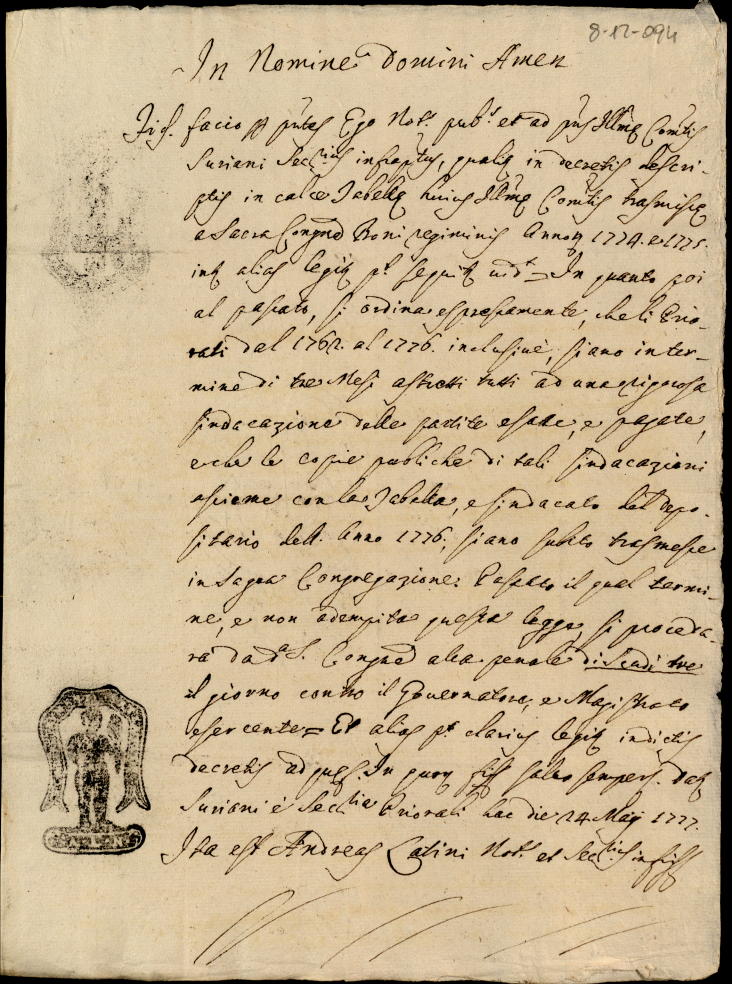 8-12-094
In Nomine Domini Amen
Fid. facio p putes Ego Not.s pub.s et ad pns Illmę Comtis
Suriani Secrius infraptus, qualitr in decretis descri-
ptis in calce Tabellę huius Illmę Comtis trasmissę
a Sacra Congne Boni regiminis Annorum 1774. e 1775.
intr alias legitr pt seguitr uidt = In quanto poi
al passato, si ordina espressamente, che li Prio-
rati dal 1762. al 1776. inclusive, siano in ter-
mine di tre Mesi astretti tutti ad una rigorosa
sindacazione delle partite esatte, e pagate,
e che le copie publiche di tali sindacazioni
assieme con la Tabella, e sindacato del Depo-
sitario dell. Anno 1776, siano subito trasmesse
in Sagra Congregazione: Passato il qual termi-
ne, e non adempita questa legge, si procede-
rà da da S. Congne alla penale di Scudi tre
il giorno contro il Governatore, e Magistrato
esercente = Et alias pt clarius legitr in dictis
decretis ad ques. In quorum fidem salvo semper. Datr
Suriani è Secria Priorali hac die 24 Maij 1777.
Ita est Andreas Catini Not.s et Secrius in fidem